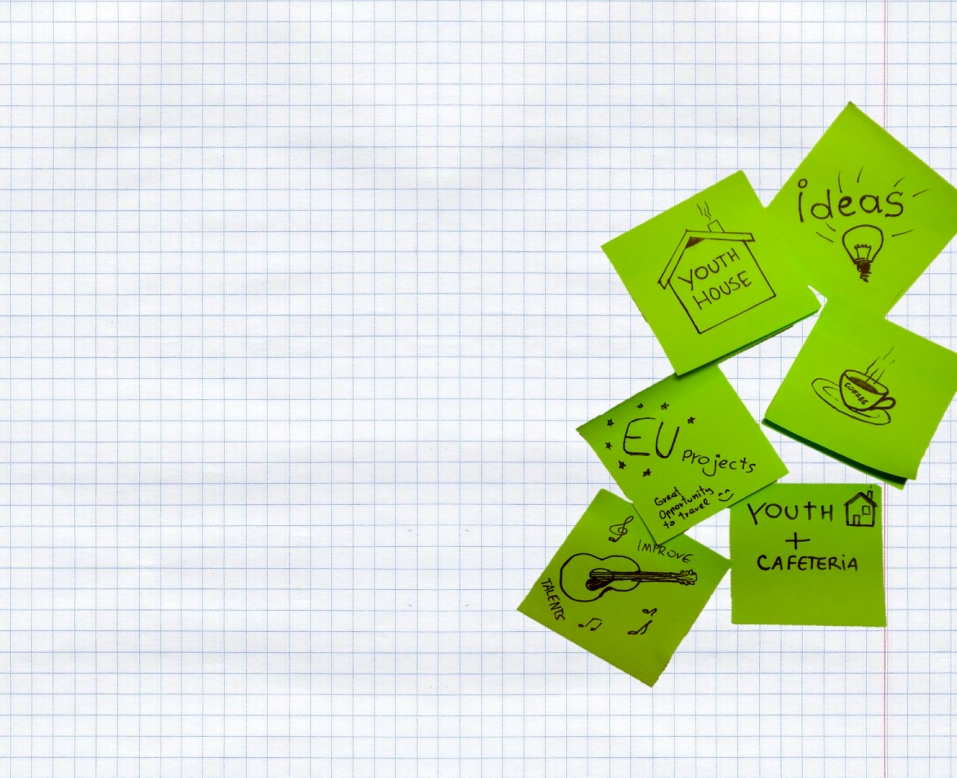 ideas
YOUTH
HOUSE
COFFEE
EU projects
Great
Opportunity
to travel
YOUTH
+
CAFETERiA
IMPROVE
TALENTS